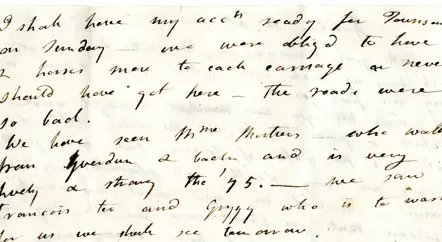 I shall have my acc^ts ready for
on Sunday — we were oblig'd to have
2 horses more to each carriage or never
should have got here — the roads were
so bad.
We have seen M^me — who walk
from Yverdun & back and is very
lively & strong tho' 75. — we saw
Francois too and who is to wash
for us we shall see tomorrow.